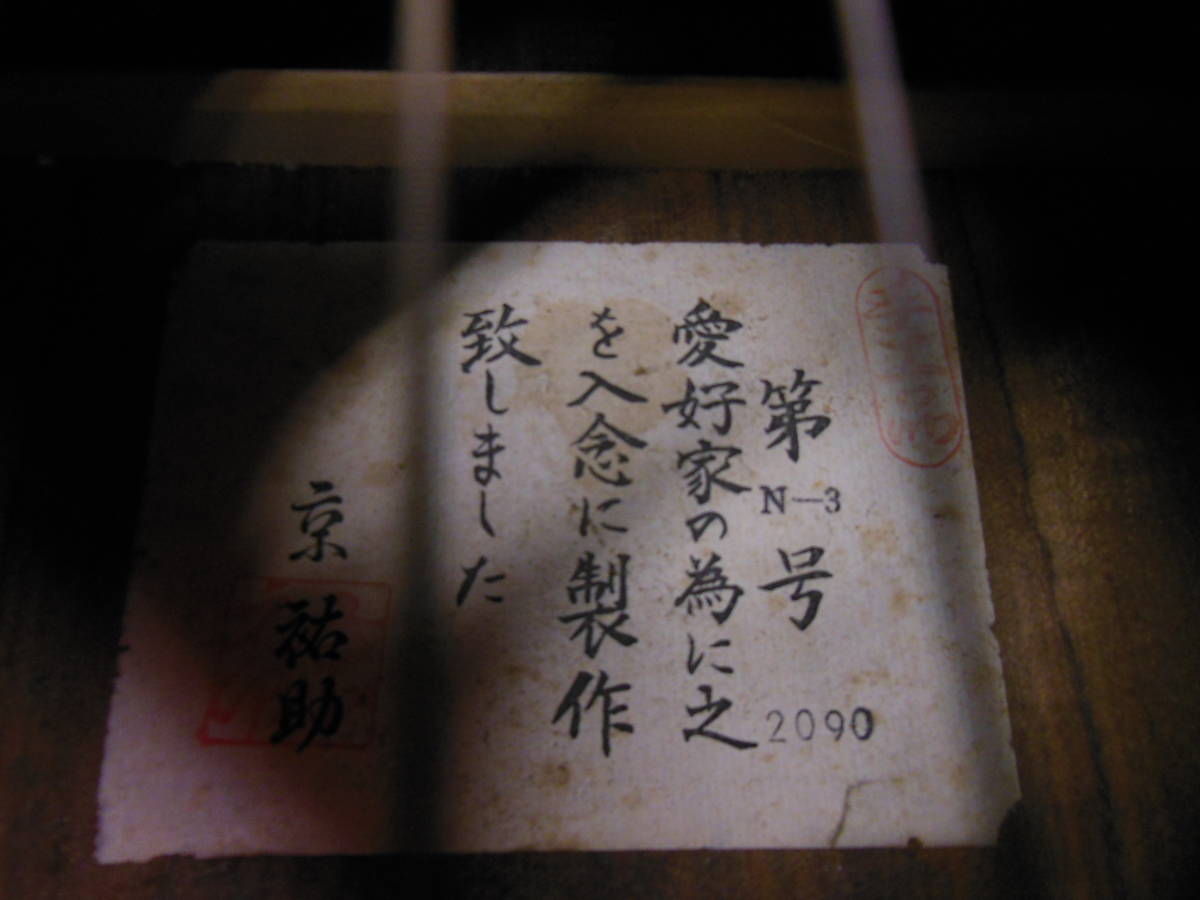 第N-3号
2090
愛好家の為に之
を入念に製作
致しました
京祐助